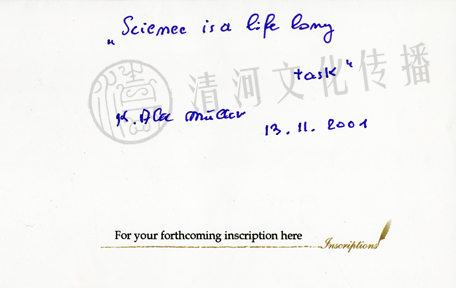 „Science is a life long
task“
清河文化传播
K. Alex Müller
13. 11. 2001
For your forthcoming inscription here
Inscriptions